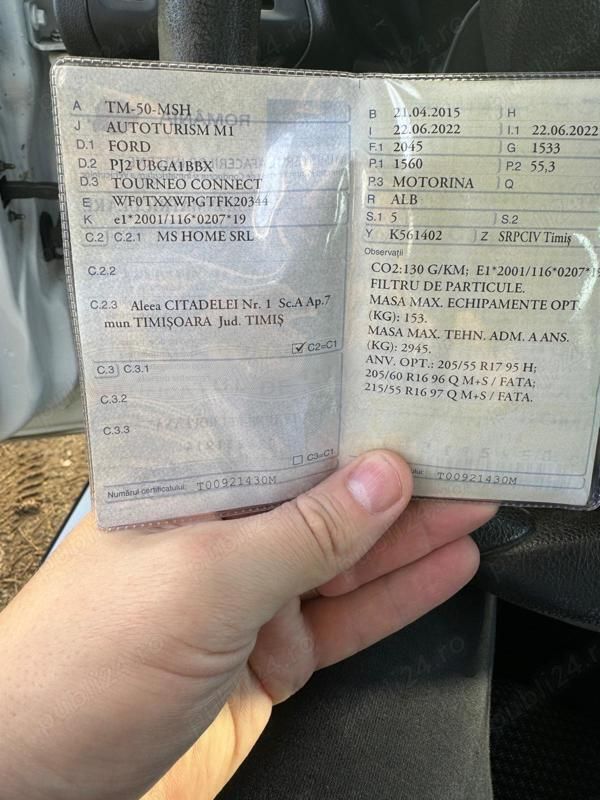 A TM-50-MSH
J AUTOTURISM M1
D.1 FORD
D.2 PJ2 UBGA1BBX
D.3 TOURNEO CONNECT
E WF0TXXWPGTFK20344
K e1*2001/116*0207*19
C.2 C.2.1 MS HOME SRL
C.2.2
C.2.3 Aleea CITADELEI Nr. 1 Sc.A Ap.7
mun TIMIȘOARA Jud. TIMIȘ
C2=C1
C.3 C.3.1
C.3.2
C.3.3
C3=C1
Numărul certificatului: T00921430M
B 21.04.2015 H
I 22.06.2022 I.1 22.06.2022
F.1 2045 G 1533
P.1 1560 P.2 55,3
P.3 MOTORINA Q
R ALB
S.1 5 S.2
Y K561402 Z SRPCIV Timiș
Observații
CO2:130 G/KM; E1*2001/116*0207*19
FILTRU DE PARTICULE.
MASA MAX. ECHIPAMENTE OPT.
(KG): 153.
MASA MAX. TEHN. ADM. A ANS.
(KG): 2945.
ANV. OPT.: 205/55 R17 95 H;
205/60 R16 96 Q M+S / FATA;
215/55 R16 97 Q M+S / FATA.
T00921430M
publi24.ro